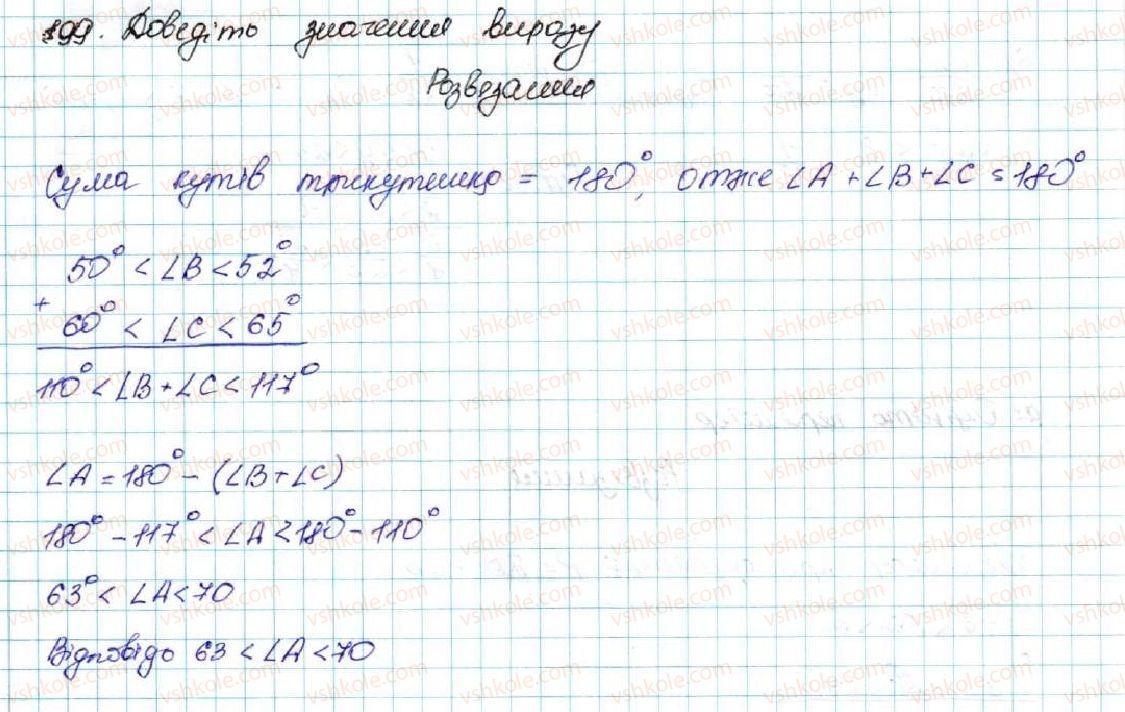 199. Доведіть значення виразу
Розвезання
Сума кутів трикутника = 180°, отже ∠A + ∠B + ∠C = 180°
50° < ∠B < 52°
+
60° < ∠C < 65°
110° < ∠B + ∠C < 117°
∠A = 180° - (∠B + ∠C)
180° - 117° < ∠A < 180° - 110°
63° < ∠A < 70
Відповідь 63 < ∠A < 70